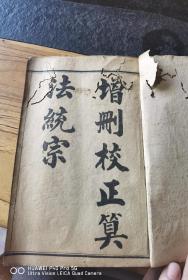 增刪校正算
法統宗
HUAWEI P30 Pro 5G
Ultra Vision LEICA Quad Camera